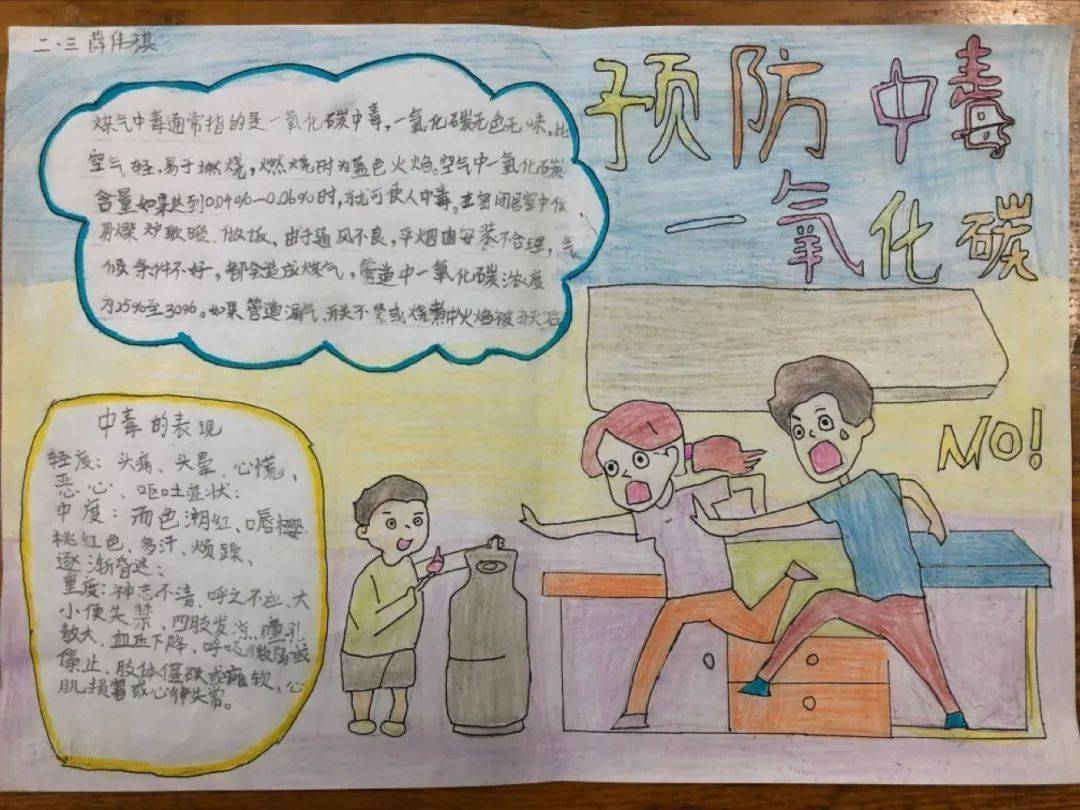 二.三 薛伟琪
预防中毒
一氧化碳
煤气中毒通常指的是一氧化碳中毒,一氧化碳无色无味,比
空气轻.易于燃烧,燃烧时为蓝色火焰。空气中一氧化碳
含量如果达到0.04%—0.06%时,就可使人中毒。在密闭居室中使
用煤炉取暖、做饭,由于通风不良,平烟囱安装不合理,气
候条件不好,都会造成煤气,管道中一氧化碳浓度
为25%至30%。如果管道漏气、开关不紧或烧煮中火焰被扑灭后
NO!
中毒的表现
轻度:头痛、头晕、心慌,
恶心、呕吐症状;
中度:面色潮红、唇樱
桃红色、多汗、烦躁、
逐渐昏迷;
重度:神志不清、呼之不应、大
小便失禁、四肢发凉、瞳孔
散大、血压下降、呼吸微弱或
停止、肢体僵硬或瘫软、心
肌损害或心律失常。